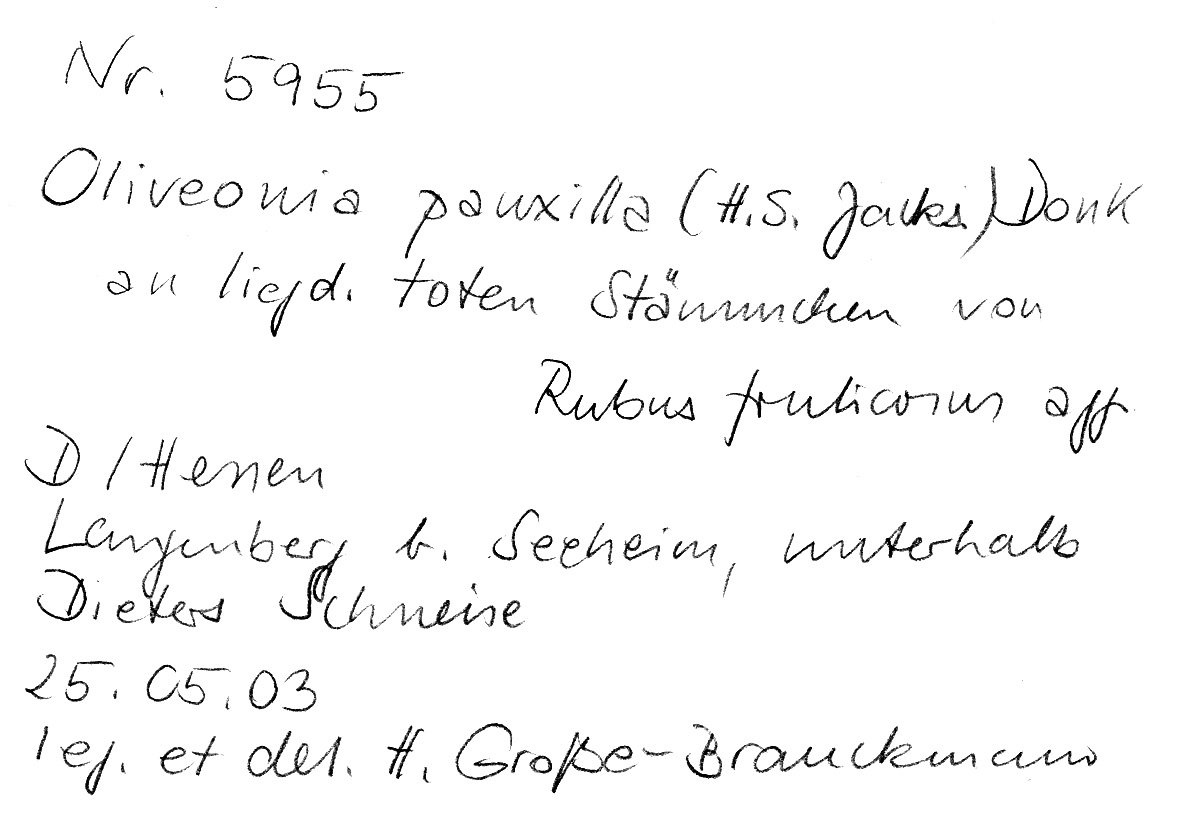 Nr. 5955
Oliveonia pauxilla (H.S. Jacks.) Donk
an liegd. toten Stämmchen von
Rubus fruticosus agg.
D/Hessen
Langenberg b. Seeheim, unterhalb
Dieters Schneise
25.05.03
leg. et det. H. Große-Brauckmann